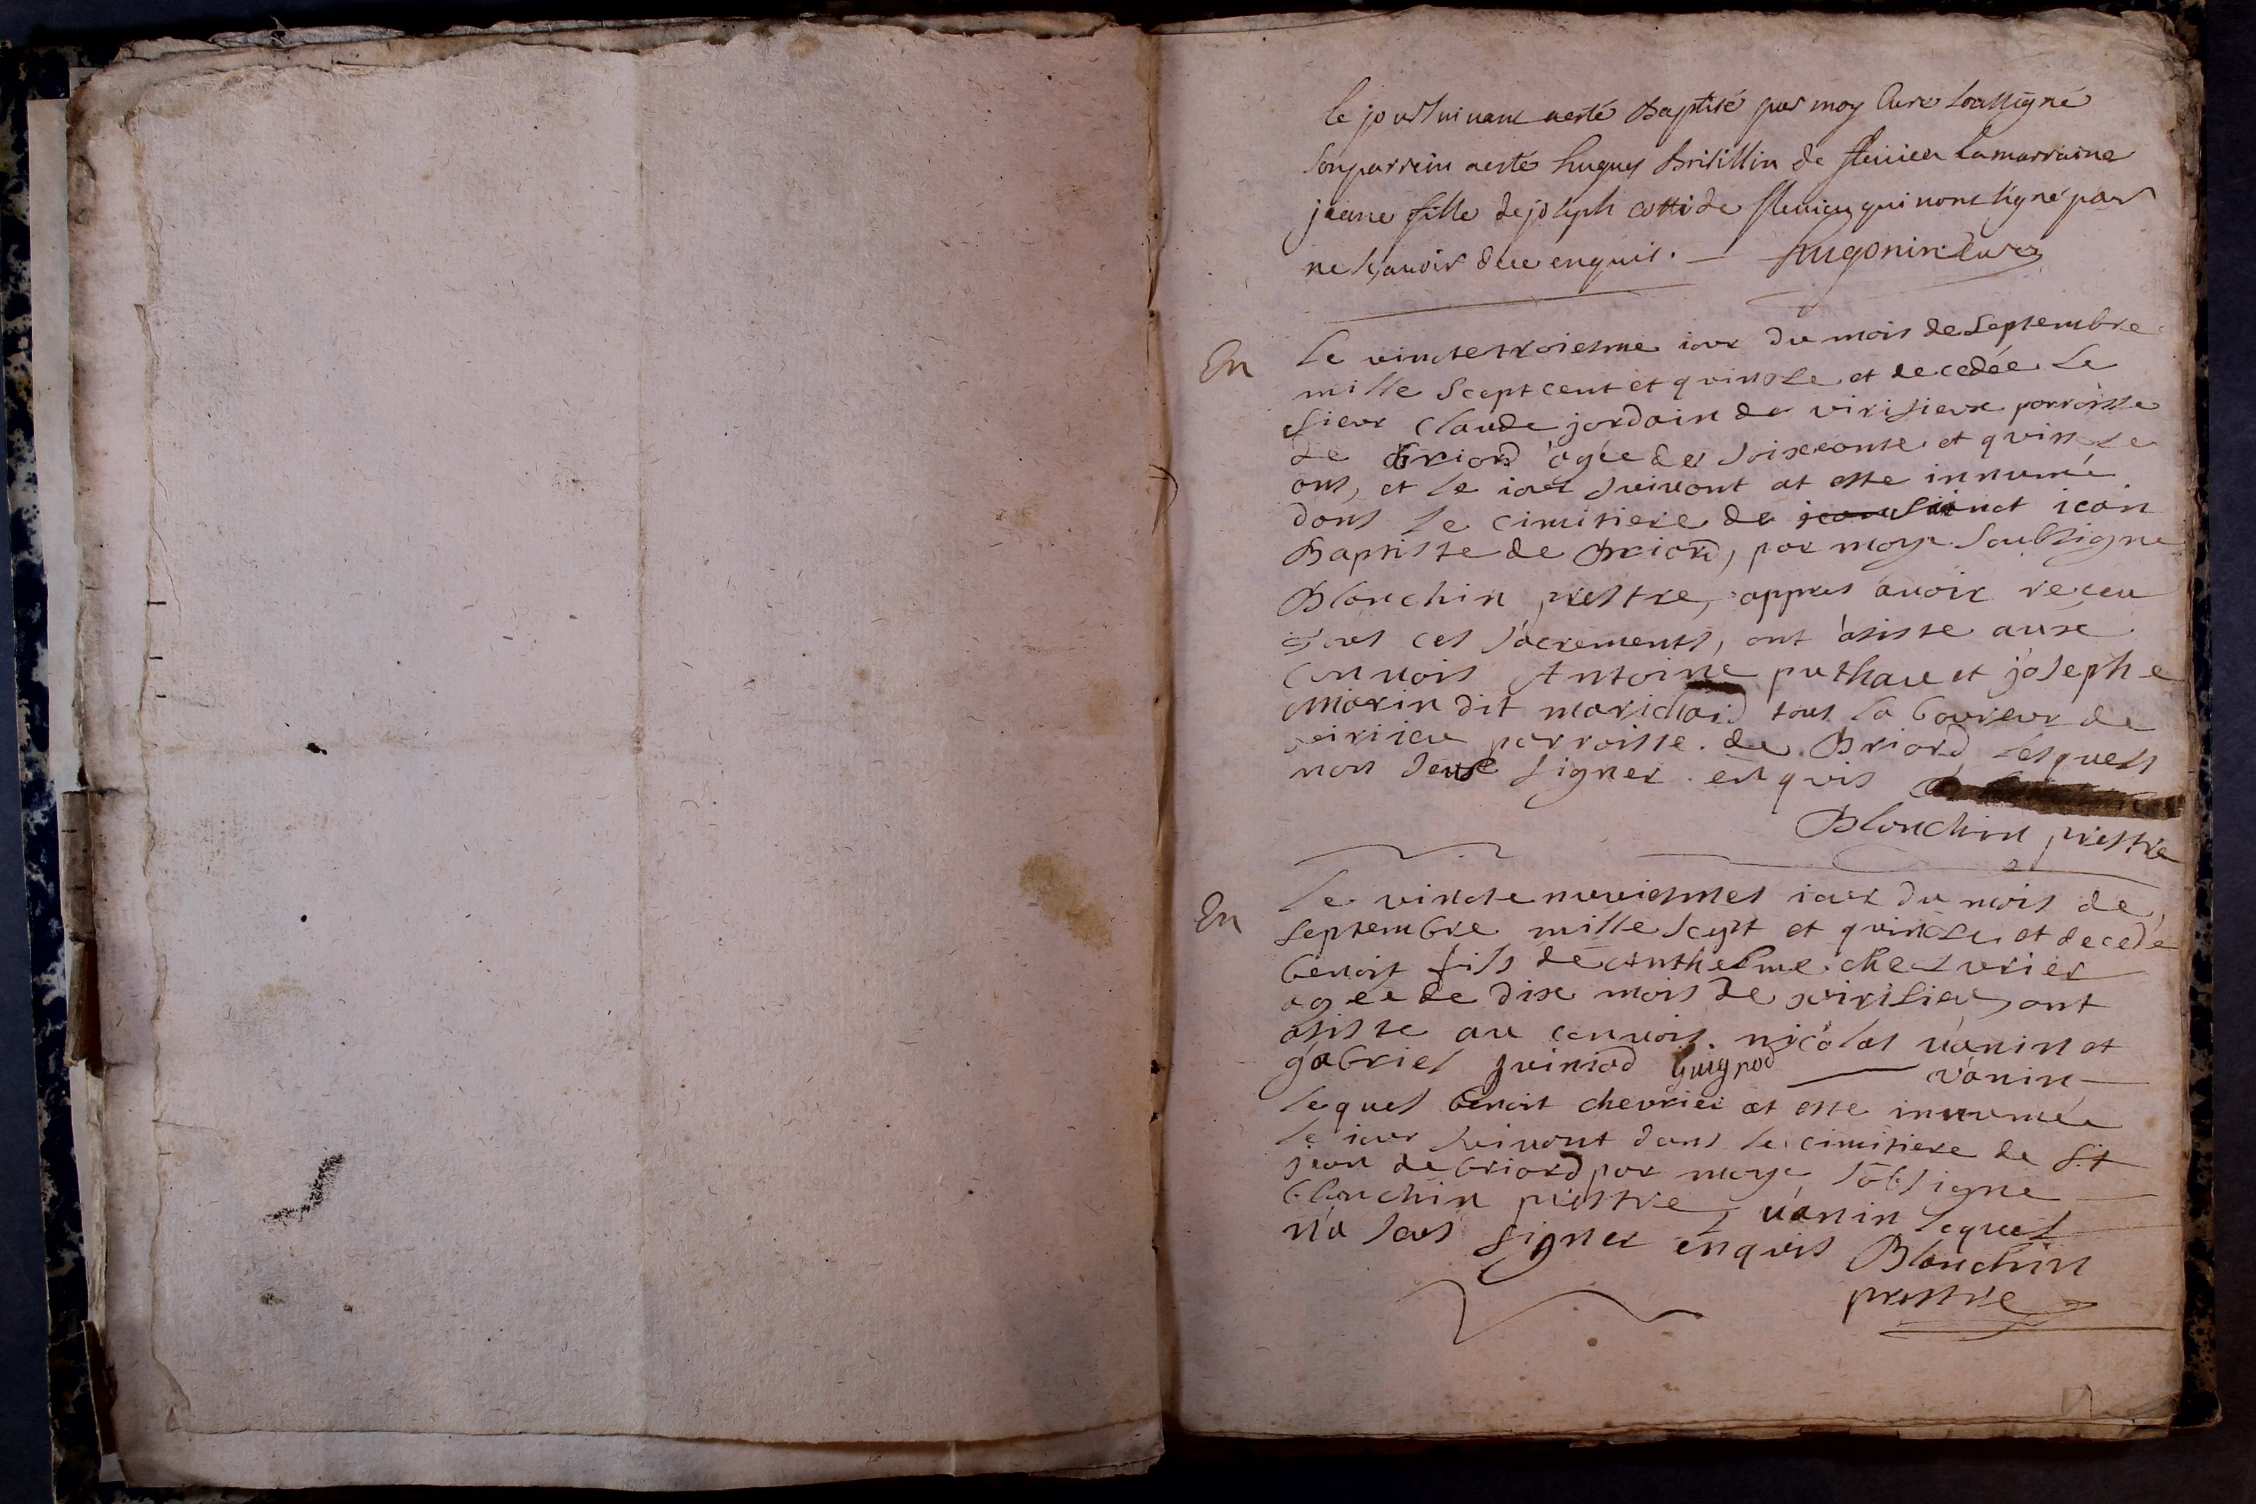 le jour suivant a esté Baptisé par moy Curé soussigné
son parrein a esté hugues Brisillin de flevieu la marraine
jeane fille de joseph cotti de flevieu qui nont signé pour
ne sçavoir de ce enquis. Hugonin Curé
En
le vinctetroiesme iour du mois de septembre
mille scept cent et quinsse et decedée le
sieur Claude jordain de virisieux parroisse
de Briord agée de soixeonte et quinsse
ans, et le iour suivont at este innumé
dans le cimitiere de sainct iean
Baptiste de Briord, par moye soubsigne
Blanchin prestre, appres avoir receu
tous ces sacrements, ont asiste auxe
convois Antoine puthaue et josephe
morin dit marichaid tous laboureur de
virisieu parroisse de Briord lesquels
nons seuse signer enquis
Blanchin prestre
En
le vincte nuviesmes iour du mois de
septembre mille scept et quinsse et decede
benoist fils de anthelme chesvrier
agee de dixe mois de virisieu, ont
asiste au convois nicolas vanin et
gabriel guiniod guignod vanin
lequel benoit chevrier at este innumée
le iour suivont dans le cimitiere de St
jean de briord par moye sobsigne
blanchin prestre, vanin lequel
n'a seus signer enquis Blanchin
prestre